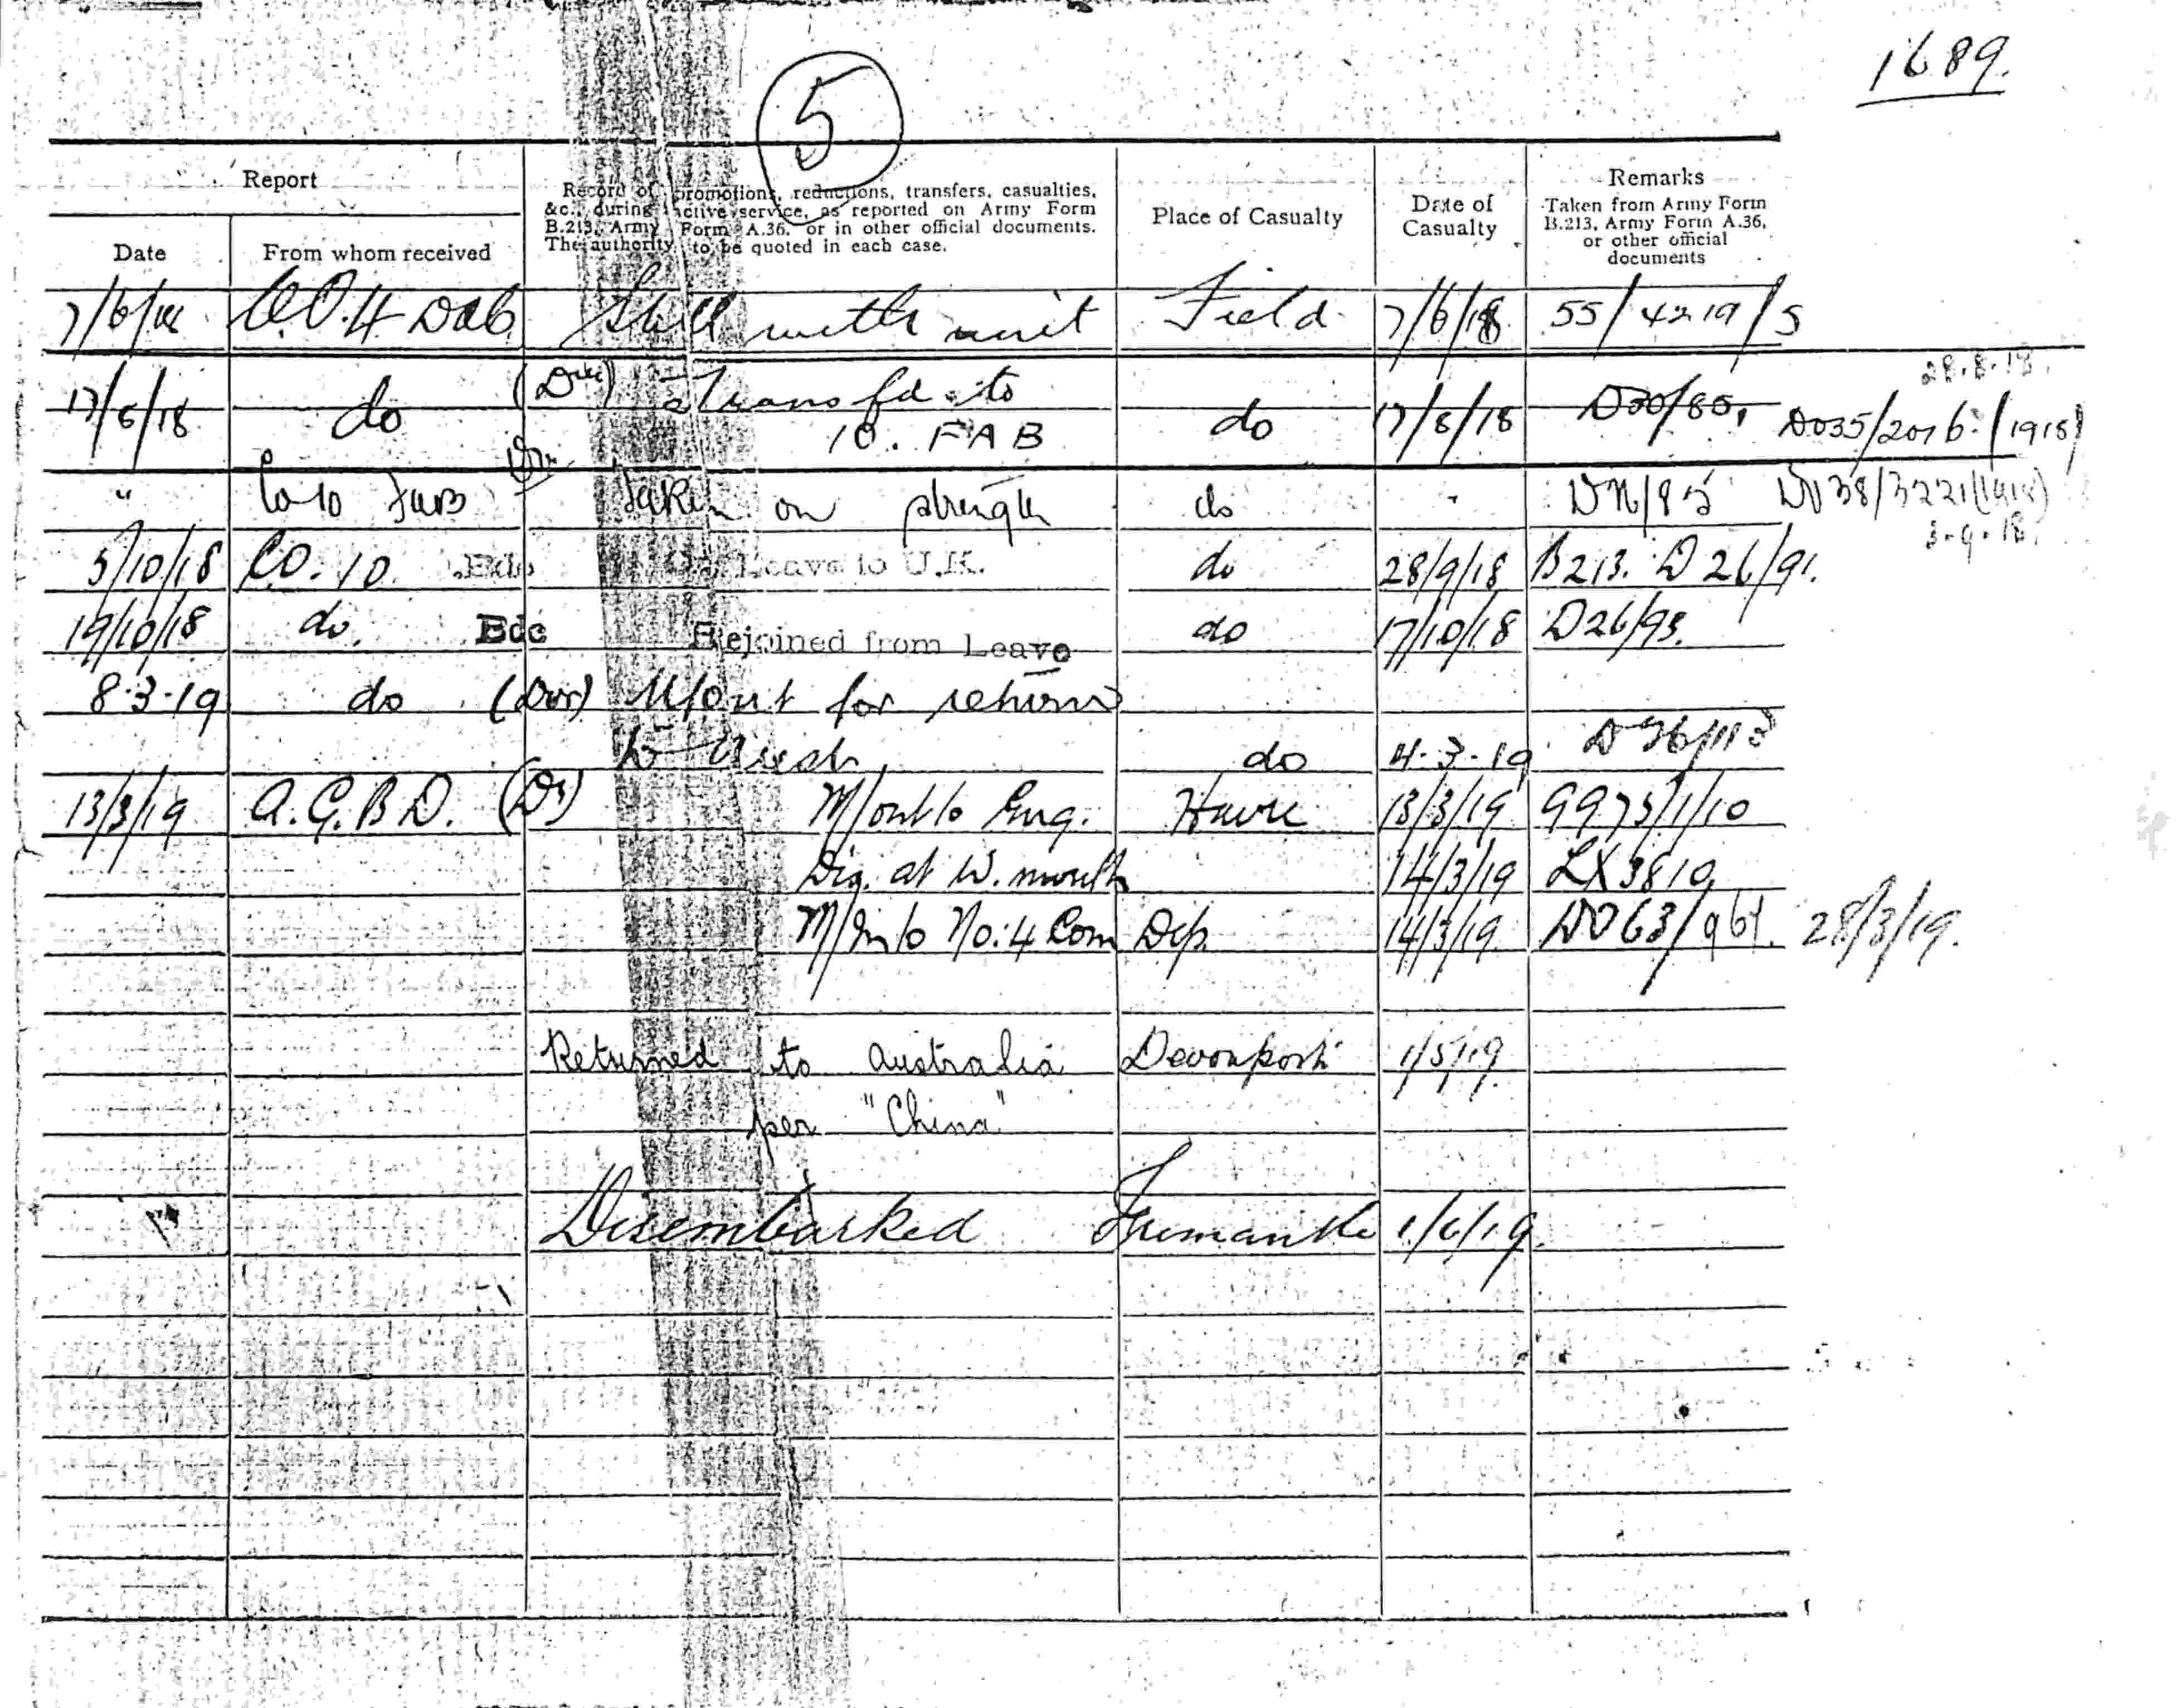 1689.
5
Report
Record of promotions, reductions, transfers, casualties,
&c., during active service, as reported on Army Form
B.213, Army Form A.36, or in other official documents.
The authority to be quoted in each case.
Place of Casualty
Date of
Casualty
Remarks
Taken from Army Form
B.213, Army Form A.36,
or other official
documents
Date
From whom received
7/6/18 C.O. 4 DAC Still with unit Field 7/6/18 55/4219/5
28.8.18.
17/8/18 do (Dvr) Transfd to
10. FAB do 17/8/18 D30/85, DO35/2076/1918)
" Co 10 FAB Dvr Taken on strength do " /85 DO38/3221(1918)
3.9.18.
5/10/18 CO. 10 Bde Leave to U.K. do 28/9/18 B213. D26/91.
19/10/18 do. Bde Rejoined from Leave do 17/10/18 D26/93.
8.3.19 do (Dvr) M/out for return
to Aust do 4.3.19 D36/113
13/3/19 A.G.B.D. (Dr) M/out to Eng. Havre 13/3/19 9975/1/10
Dis. at W. mouth 14/3/19 LX3810
M/In to No: 4 Com Dep. 14/3/19 DO63/961. 28/3/19.
Returned to Australia Devonport 1/5/19
per "China"
Disembarked Fremantle 1/6/19.